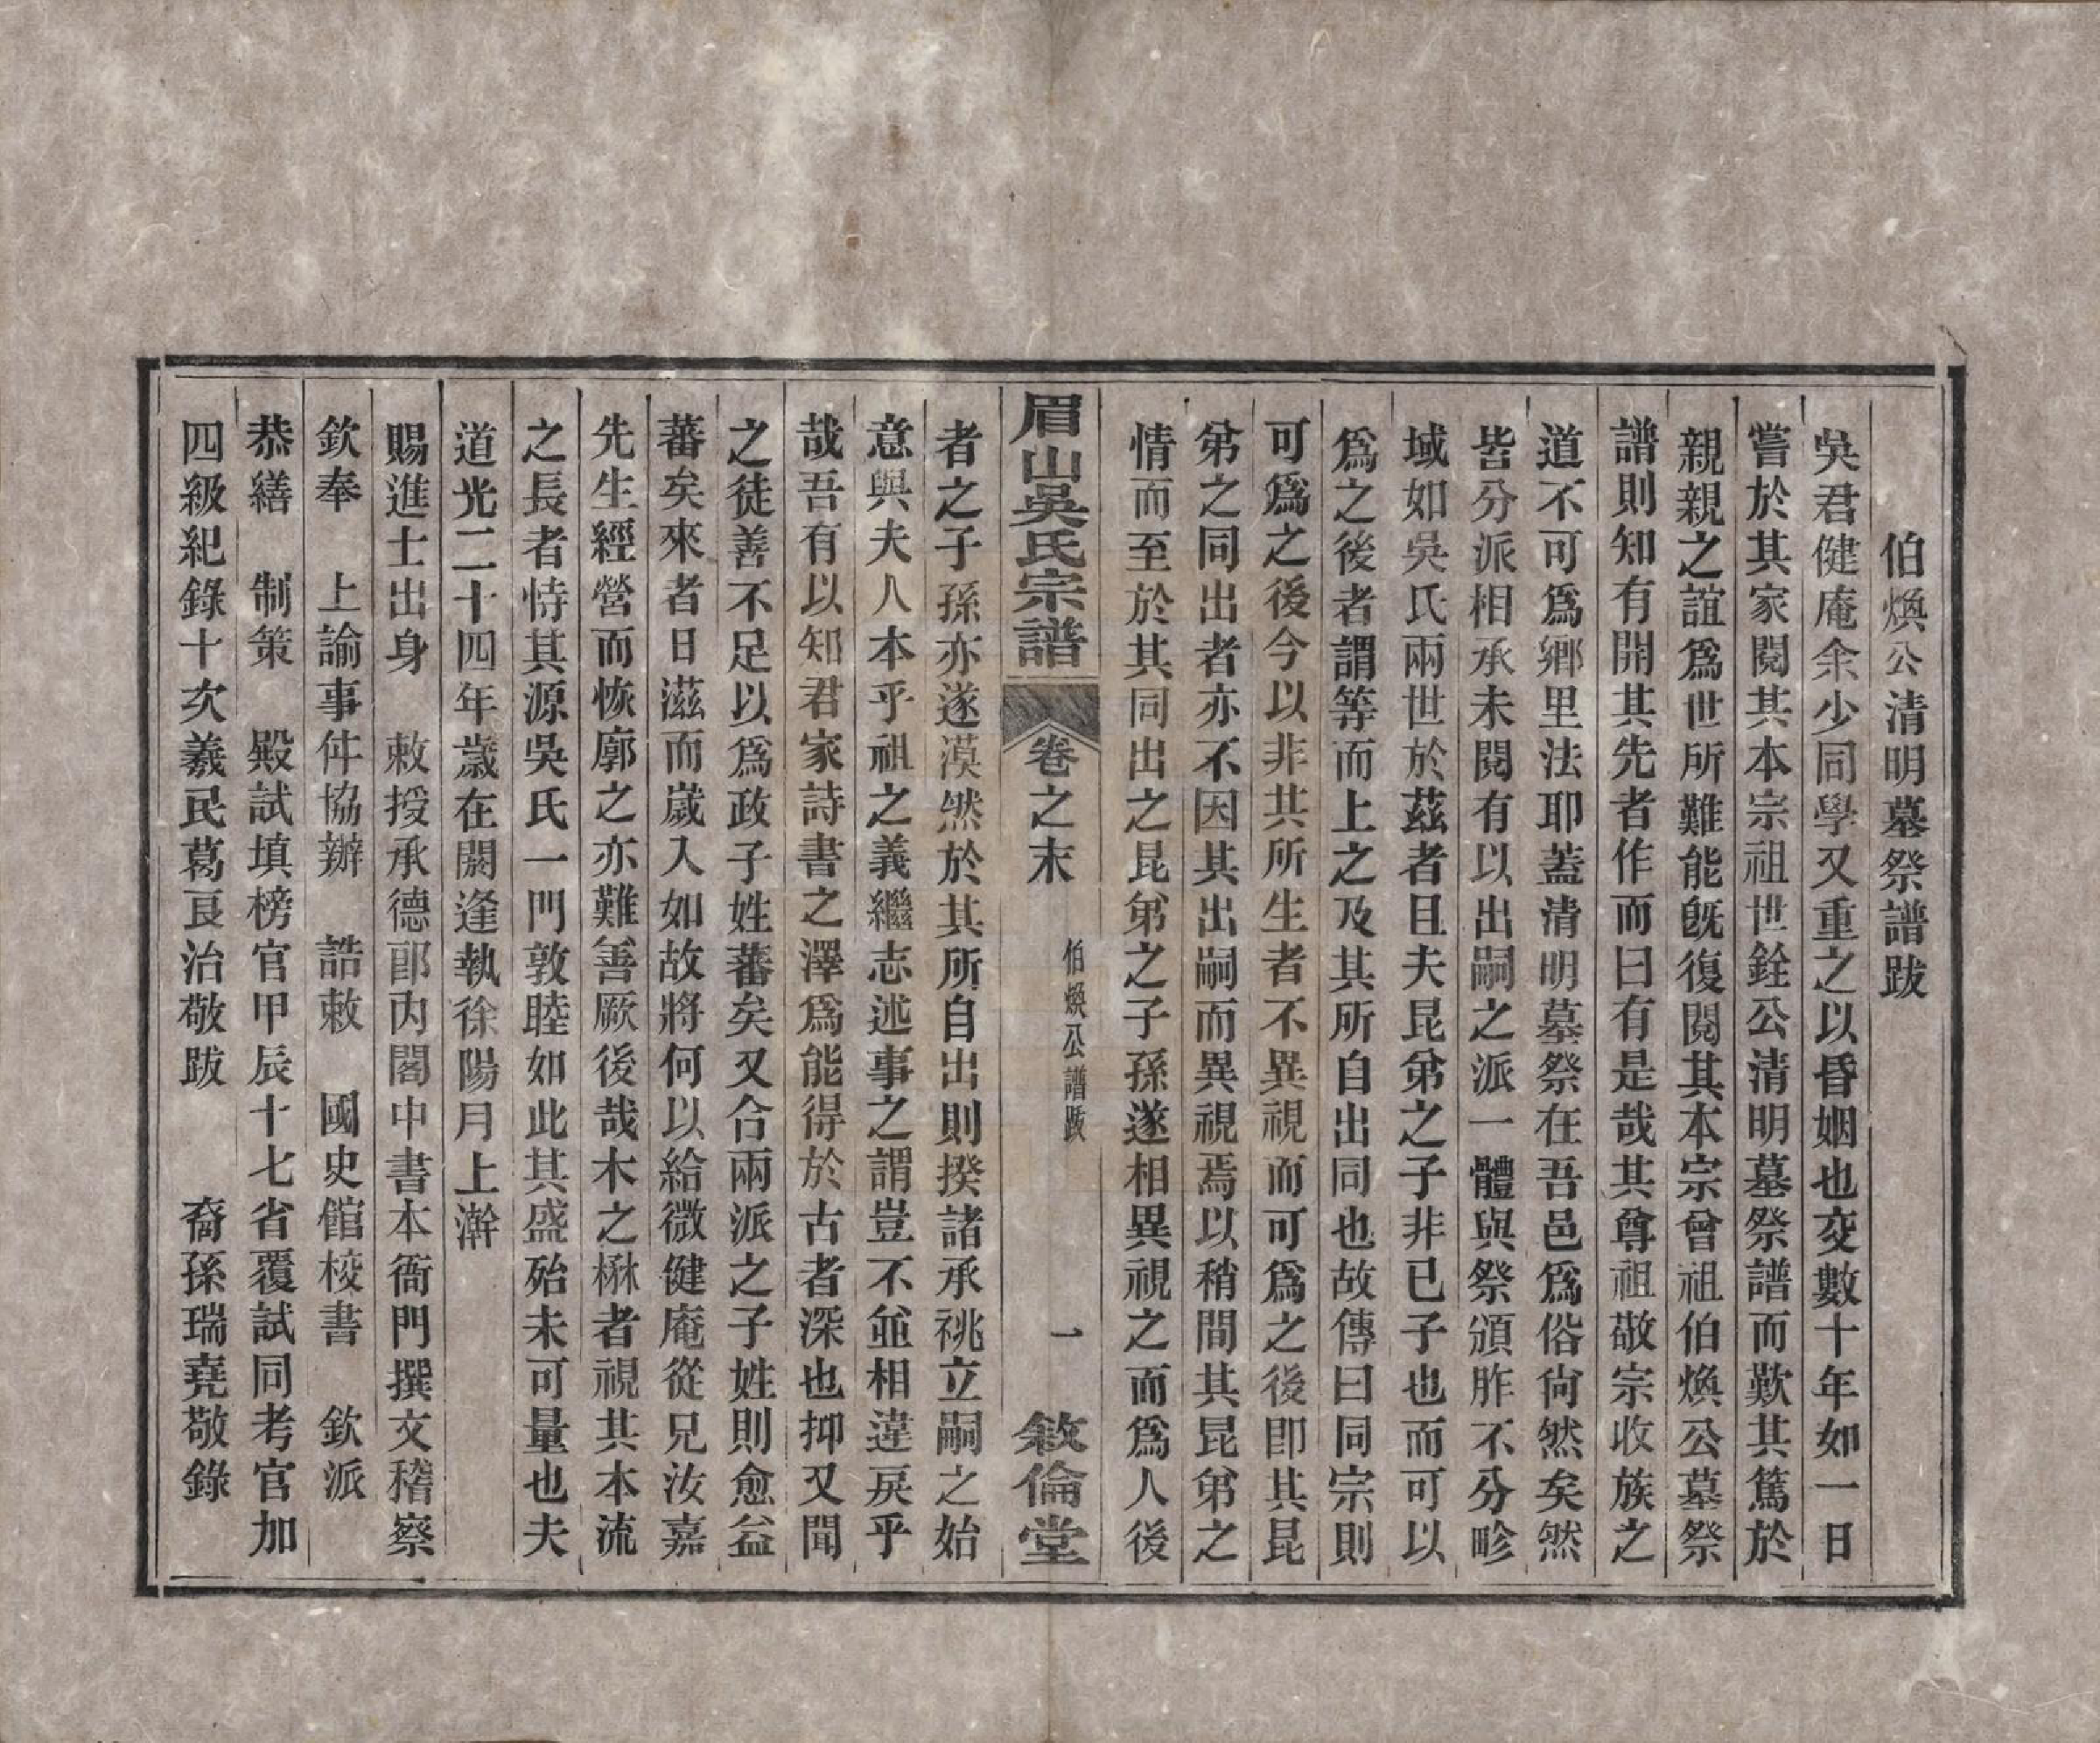 伯煥公清明墓祭譜跋
吳君健庵余少同學又重之以昏姻也交數十年如一日
嘗於其家閱其本宗祖世銓公清明墓祭譜而歎其篤於
親親之誼爲世所難能旣復閱其本宗曾祖伯煥公墓祭
譜則知有開其先者作而曰有是哉其尊祖敬宗收族之
道不可爲鄉里法耶蓋清明墓祭在吾邑爲俗尙然矣然
皆分派相承未閱有以出嗣之派一體與祭頒胙不分畛
域如吳氏兩世於茲者且夫昆弟之子非已子也而可以
爲之後者謂等而上之及其所自出同也故傳曰同宗則
可爲之後今以非其所生者不異視而可爲之後卽其昆
弟之同出者亦不因其出嗣而異視焉以稍間其昆弟之
情而至於其同出之昆弟之子孫遂相異視之而爲人後
眉山吳氏宗譜 卷之末 伯煥公譜跋 一 敘倫堂
者之子孫亦遂漠然於其所自出則揆諸承祧立嗣之始
意與夫人本乎祖之義繼志述事之謂豈不並相違戾乎
哉吾有以知君家詩書之澤爲能得於古者深也抑又聞
之徒善不足以爲政子姓蕃矣又合兩派之子姓則愈益
蕃矣來者日滋而歲入如故將何以給微健庵從兄汝嘉
先生經營而恢廓之亦難善厥後哉木之楙者視其本流
之長者恃其源吳氏一門敦睦如此其盛殆未可量也夫
道光二十四年歲在閼逢執徐陽月上澣
賜進士出身 敕授承德郎內閣中書本衙門撰文稽察
欽奉 上諭事件協辦 誥敕 國史館校書 欽派
恭繕 制策 殿試填榜官甲辰十七省覆試同考官加
四級紀錄十次羲民葛良治敬跋 裔孫瑞堯敬錄